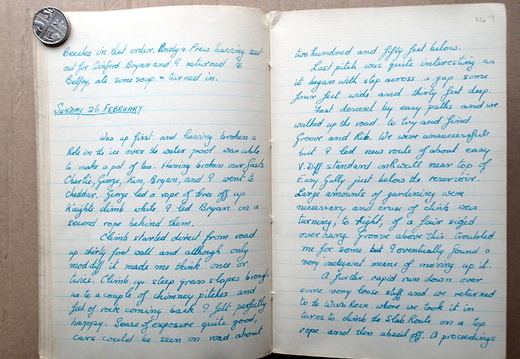 Beeches in that order. Andy & Prew having set
out for Winford Bryan and I returned to
Belfry, ate some soup & turned in.
SUNDAY 26 FEBRUARY.
Was up first and having broken a
hole in the ice over the water pool was able
to make a pot of tea. Having broken our fasts
Charlie, George, Ken, Bryan, and I went to
Cheddar. George led a rope of three off up
Knights climb while I led Bryan on a
second rope behind them.
Climb started direct from road
up thirty foot wall and although only
mod diff it made me think once or
twice. Climb up steep grass slopes brought
us to a couple of chimney pitches and
feel of rock coming back I felt perfectly
happy. Sense of exposure quite good,
cars could be seen on road about
167
two hundred and fifty feet below.
Last pitch was quite interesting as
it began with step across a gap some
four feet wide and thirty feet deep.
Final descent by easy paths and we
walked up the road to try and find
Groove and Rib. We were unsuccessful
but I led new route of about easy
V Diff standard on wall near top of
Easy Gully just below the reservoir.
Large amounts of gardening were
necessary, and crux of climb was
turning, to right, of a fair sized
overhang. Groove above this troubled
me for some but I eventually found a
very inelegant means of moving up it.
A further rapid run down over
some very loose stuff and we returned
to the Wind Rock where we took it in
turns to climb the Slab Route on a top
rope and then abseil off. A proceedings